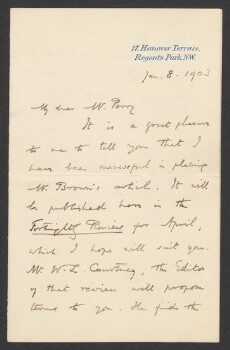 17, Hanover Terrace,
Regents Park, N.W.
Jan. 8. 1903
My dear Mr. Perry
It is a great pleasure
to me to tell you that I
have been successful in placing
Mr. Brown's article. It will
be published here in the
Fortnightly Review for April,
which I hope will suit you.
Mr. W. L. Courtney, the Editor
of that review will propose
terms to you. He finds the